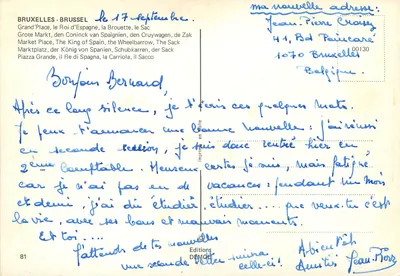 BRUXELLES - BRUSSEL
Grand'Place, le Roi d'Espagne, la Brouette, le Sac
Grote Markt, den Coninck van Spaignien, den Cruywagen, de Zak
Market Place, The King of Spain, the Wheelbarrow, The Sack
Marktplatz, der König von Spanien, Schubkarren, der Sack
Piazza Grande, il Re di Spagna, la Carriola, il Sacco
le 17 septembre.
ma nouvelle adresse:
Jean-Pierre
41, Bd Poincaré
1070 Bruxelles
Belgique.
00130
Bonjour Bernard,
Après ce long silence, je t'écris ces quelques mots.
Je peux t'annoncer une bonne nouvelle: j'ai réussi
en seconde session, je suis donc rentré hier en
2ème comptable. Heureux certes je suis, mais fatigué
car je n'ai pas eu de vacances: pendant un mois
et demi, j'ai dû étudier étudier... que veux-tu c'est
la vie, avec ses bons et mauvais moments.
Et toi....
J'attends de tes nouvelles
une seconde lettre suivra
celle-ci!
A bientôt
Amitiés Jean-Pierre
81
Editions